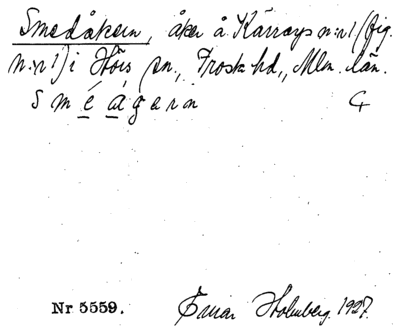 Smedåkern, åker å Kärrarp n:r 1 (fig.
n:r 1) i Hörs sn., Frosta hd., Mlm. län.
Sméágern
Nr 5559. Einar Holmberg. 1927.